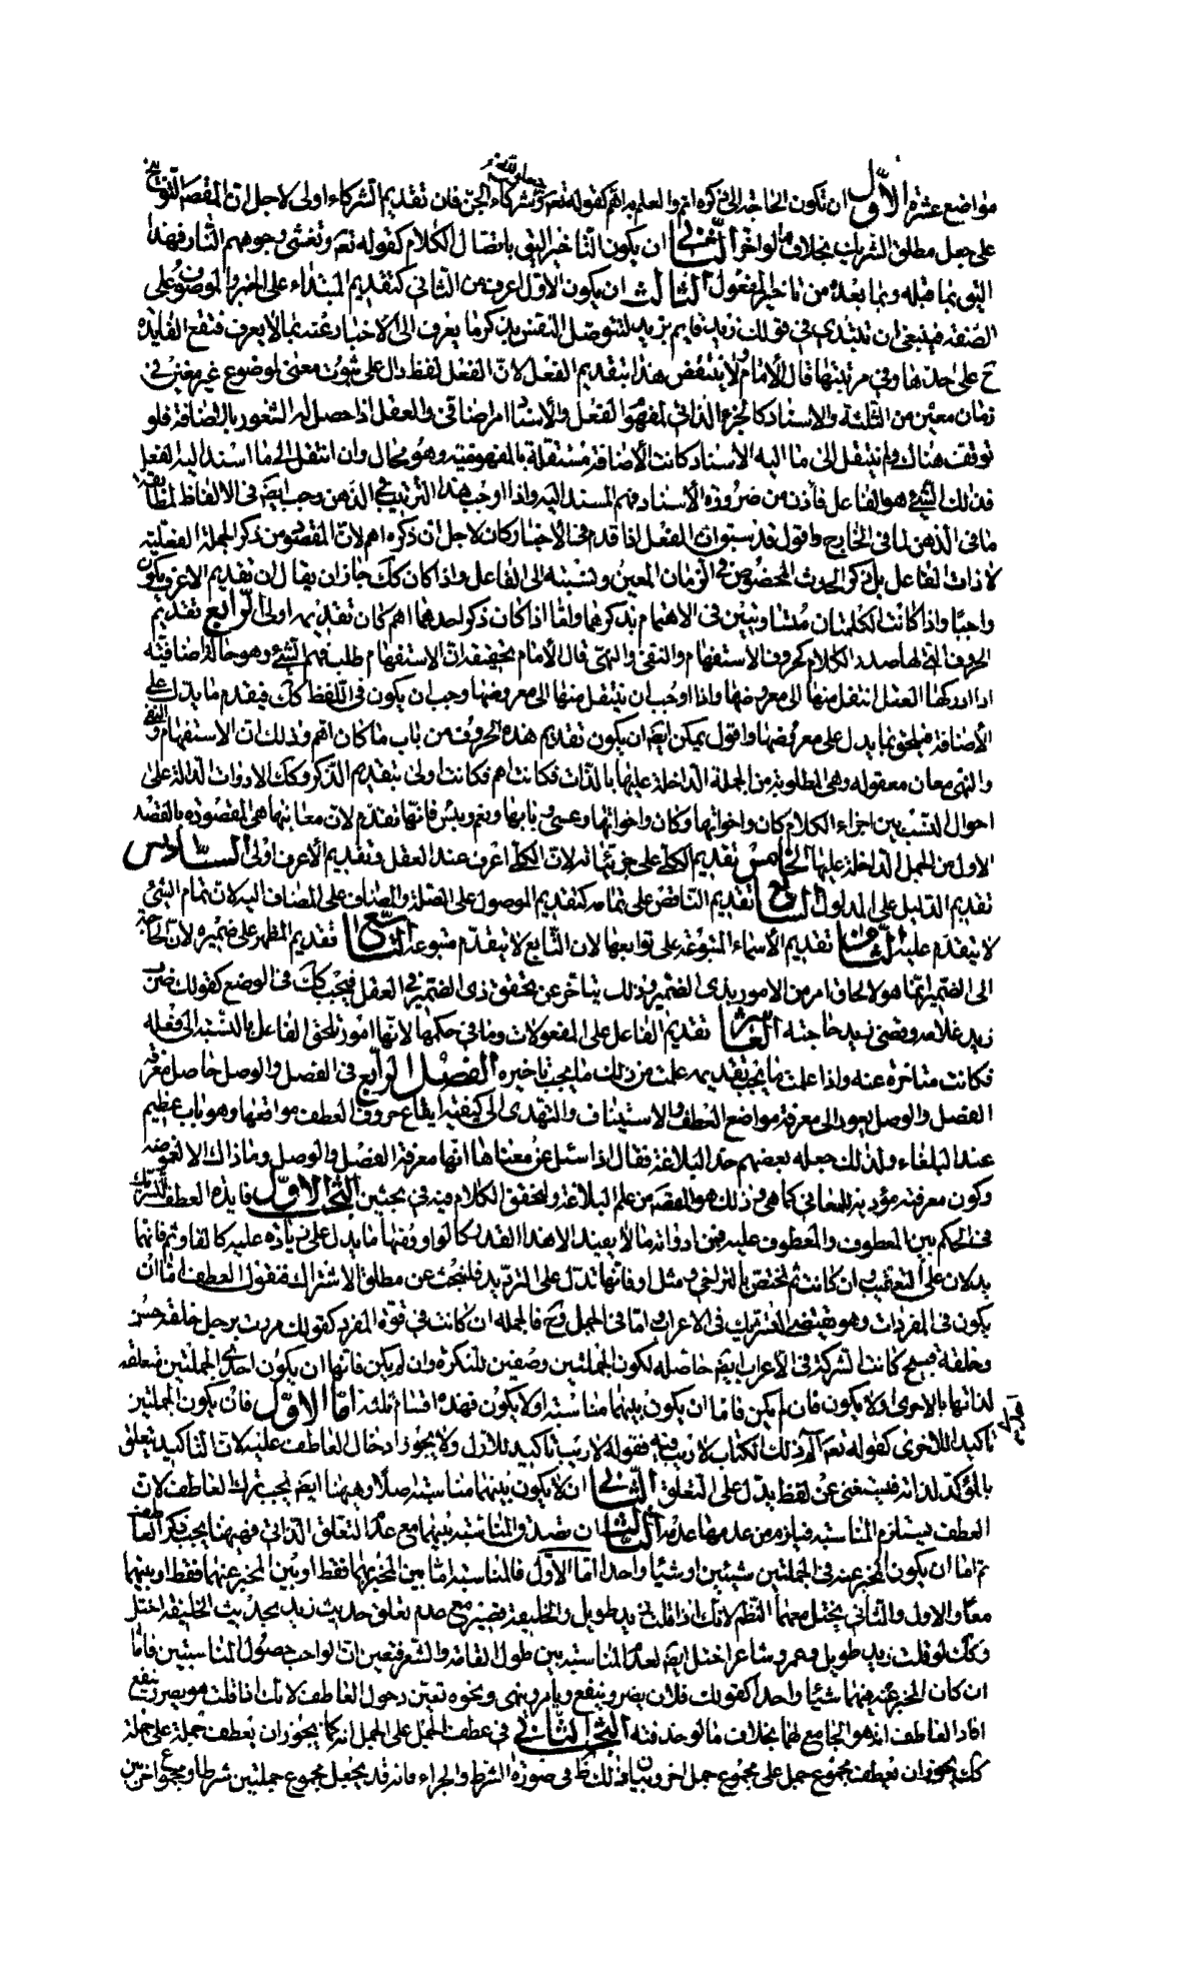 مواضع عشرة الاول ان تكون الحاجة الى ذكره اتم والعلم به اهم كقوله تعم وجعلوا لله شركاء الجن فان تقديم الشركاء اولى لاجل ان المقصم التوبيخ
على جعل مطلق الشريك بخلاف ما لو اخر الثاني ان يكون التاخير اليق باتصال الكلام كقوله تعم وتغشى وجوههم النار فهذا
اليق بما قبله وبما بعده من تاخير المفعول الثالث ان يكون الاول اعرف من الثاني كتقديم المبتداء على الخبر والموصوف على
الصفة فينبغي ان تبتدى في قولك زيد قايم بزيد لتتوصل النفس بذكر ما يعرف الى الاخبار عنه بما لا يعرف فتقع الفايدة
ح على حدها وفي مرتبتها قال الامام ولا ينتقض هذا بتقديم الفعل لان الفعل لفظ دال على ثبوت معنى لموضوع غير معين في
زمان معين من الثلثة والاسناد كالجزء الذاتي لمفهوم الفعل والاسناد امر اضافي والعقل اذا حصل له الشعور بالاضافة فلو
توقف هناك ولم ينتقل الى ما اليه الاسناد كانت الاضافة مستقلة بالمفهومية وهو محال وان انتقل الى ما اسند اليه الفعل
فذلك الشئ هو الفاعل فاذن من ضرورة الاسناد فهم المسند اليه واذا اوجب هذا الترتيب في الذهن وجب ايضم في الالفاظ لمطابقة
ما في الذهن لما في الخارج واقول قد سبق ان الفعل انما قدم في الاخبار وكان لاجل ان ذكره اهم لان المقصود من ذكر الجملة الفعلية
لا ذات الفاعل بل ذكر الحدث المخصوص في الزمان المعين ونسبته الى الفاعل واذا كان كك جاز ان يقال ان تقديم الاعرف يكون
واجبا واذا كانت الكلمتان متساويتين في الاهتمام بذكرهما واما اذا كان ذكر احدهما اهم كان تقديمه اولى الرابع تقديم
الحروف التي لها صدر الكلام كحروف الاستفهام والنفي والنهي قال الامام تحقيقه ان الاستفهام طلب فهم الشئ وهو حالة اضافية
اذا ادركها العقل انتقل منها الى معروضها واذا اوجب ان ينتقل منها الى معروضها وجب ان يكون في اللفظ كك فيقدم ما يدل على
الاضافة فيلحق بما يدل على معروضها واقول يمكن ايضم ان يكون تقديم هذه الحروف من باب ما كان اهم وذلك ان الاستفهام والنفي
والنهي معان معقولة وهي المطلوبة من الجملة الداخلة عليها بالذات فكانت اهم فكانت اولى بتقديم الذكر وكك الادوات الدالة على
احوال النسب بين اجزاء الكلام كان واخواتها وكان واخواتها وعسى وبابها ونعم وبئس فانها تقدم لان معانيها هي المقصودة بالقصد
الاول من الجمل الداخلة عليها الخامس تقديم الكلى على جزئياته لان الكلى اعرف عند العقل وتقديم الاعرف اولى السادس
تقديم الدليل على المدلول السابع تقديم الناقص على تمامه كتقديم الموصول على الصلة والمضاف على المضاف اليه لان تمام الشئ
لا يتقدم عليه الثامن تقديم الاسماء المتبوعة على توابعها لان التابع لا يتقدم متبوعه التاسع تقديم المظهر على ضميره لان الحاجة
الى الضمير انما هو لالحاق امر من الامور بذى الضمير وذلك يتاخر عن تحقق ذى الضمير في العقل فيجب كك في الوضع كقولك ضرب
زيد غلامه وقضى زيد حاجته العاشر تقديم الفاعل على المفعولات وما في حكمها لانها امور تلحق الفاعل بالنسبة الى فعله
فكانت متاخرة عنه واذا علمت ما يجب تقديمه علمت من ذلك ما يجب تاخيره الفصل الرابع في الفصل والوصل حاصل معرفة
الفصل والوصل يعود الى معرفة مواضع العطف والاستيناف والتهدى الى كيفية ايقاع حروف العطف مواقعها وهو باب عظيم
عند البلغاء ولذلك جعله بعضهم حد البلاغة فقال اذا سئل عن معناها انها معرفة الفصل والوصل وما ذاك الا لغموضه
وكون معرفته مؤدية للمعاني كما هي وذلك هو المقصم من علم البلاغة ولنحقق الكلام فيه في بحثين البحث الاول فايدة العطف التشريك
في الحكم بين المعطوف والمعطوف عليه فمن ادواته ما لا يفيد الا هذا القدر كالواو ومنها ما يدل على زيادة عليه كالفاء وثم فانهما
يدلان على التعقيب وان كانت ثم تختص بالتراخي ومثل او فانها تدل على الترديد فلنبحث عن مطلق الاشتراك فنقول العطف اما ان
يكون في المفردات وهو يقتضى التشريك في الاعراب واما في الجمل وح فالجملة ان كانت في قوة المفرد كقولك مررت برجل خلقه حسن
وخلقه قبيح كانت الشركة في الاعراب ايضم حاصله لكون الجملتين وصفين للنكرة وان لم يكن فاما ان يكون احدى الجملتين متعلقة
لذاتها بالاخرى اولا يكون فان لم يكن فاما ان يكون بينهما مناسبة اولا يكون فهذه اقسام ثلثة اما الاول فان يكون الجملتين
تاكيدا للاخرى كقوله تعم الم ذلك الكتاب لا ريب فيه فقوله لا ريب تاكيد للاول ولا يجوز ادخال العاطف عليه لان التاكيد يتعلق
بالمؤكد لذاته فيستغنى عن لفظ يدل على التعلق الثاني ان لا يكون بينهما مناسبة اصلا وههنا ايضم يجب ترك العاطف لان
العطف يستلزم المناسبة فيلزم من عدمها عدمه الثالث ان تصدق المناسبة بينهما مع عدم التعلق الذاتي فههنا يجب ذكر العاطف
ثم اما ان يكون المخبر عنه في الجملتين شيئين او شيئا واحدا اما الاول فالمناسبة اما بين المخبر بهما فقط او بين المخبر عنهما فقط او بينهما
معا والاول والثاني يختل معهما النظم لانك اذا قلت زيد طويل والخليفة قصير مع عدم تعلق حديث زيد بحديث الخليفة اختل
وكك لو قلت زيد طويل وعمرو شاعر اختل ايضم لعدم المناسبة بين طول القامة والشعر فتعين ان الواجب حصول المناسبتين فاما
ان كان المخبر عنه فيهما شيئا واحدا كقولك فلان يضر وينفع ويامر وينهى ونحوه تعين دخول العاطف لانك اذا قلت هو يضر وينفع
افاد العاطف انه هو الجامع لهما بخلاف ما لو حذفته البحث الثاني في عطف الجمل على الجمل انه كما يجوز ان يعطف جملة على جملة
كك يجوز ان يعطف مجموع جمل على مجموع جمل اخرى وبيان ذلك ظ في صورة الشرط والجزاء فانه قد يجعل مجموع جملتين شرطا ومجموع اخريين